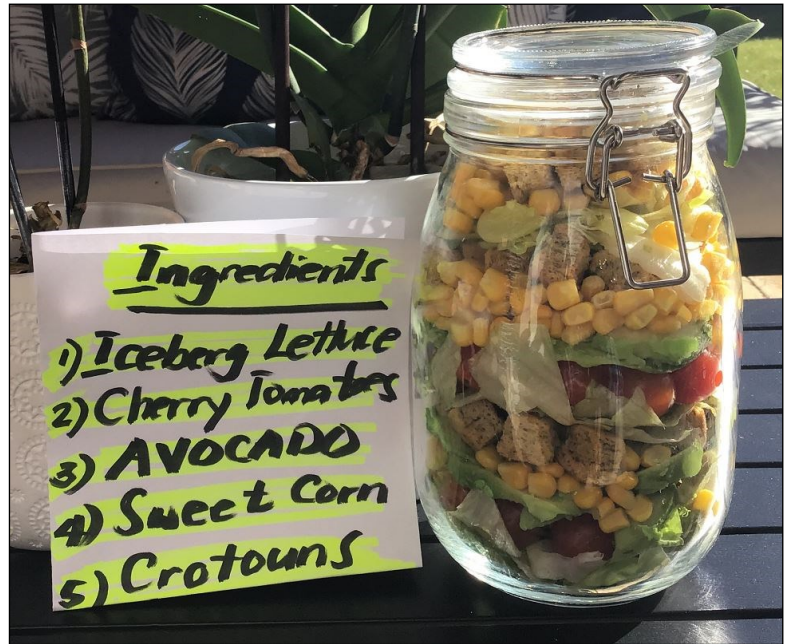 Ingredients
1) Iceberg Lettuce
2) Cherry Tomatoes
3) AVOCADO
4) Sweet Corn
5) Crotouns